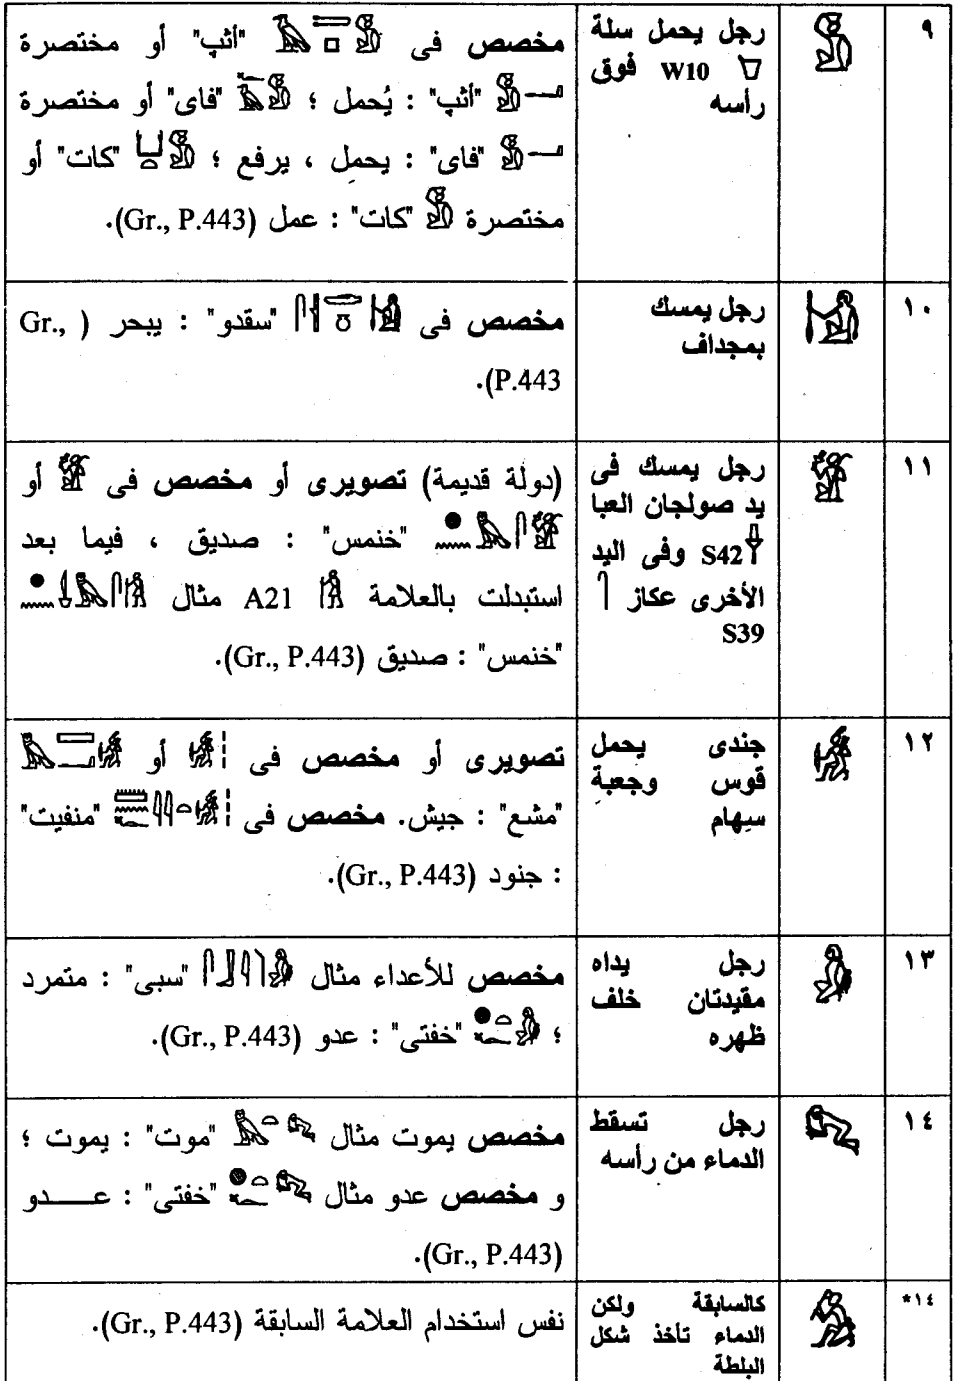 ٩
رجل يحمل سلة
W10 فوق
رأسه
مخصص فى "أثپ" أو مختصرة
"أثپ" : يُحمل ؛ "فاى" أو مختصرة
"فاى" : يحمل ، يرفع ؛ "كات" أو
مختصرة "كات" : عمل (Gr., P.443).
١٠
رجل يمسك
بمجداف
مخصص فى "سقدو" : يبحر (Gr.,
P.443).
١١
رجل يمسك فى
يد صولجان العبا
S42 وفى اليد
الأخرى عكاز
S39
(دولة قديمة) تصويرى أو مخصص فى أو
"خنمس" : صديق ، فيما بعد
استبدلت بالعلامة A21 مثال
"خنمس" : صديق (Gr., P.443).
١٢
جندى يحمل
قوس وجعبة
سهام
تصويرى أو مخصص فى أو
"مشع" : جيش. مخصص فى "منفيت"
: جنود (Gr., P.443).
١٣
رجل يداه
مقيدتان خلف
ظهره
مخصص للأعداء مثال "سبى" : متمرد
؛ "خفتى" : عدو (Gr., P.443).
١٤
رجل تسقط
الدماء من رأسه
مخصص يموت مثال "موت" : يموت ؛
و مخصص عدو مثال "خفتى" : عـــدو
(Gr., P.443).
١٤*
كالسابقة ولكن
الدماء تأخذ شكل
البلطة
نفس استخدام العلامة السابقة (Gr., P.443).